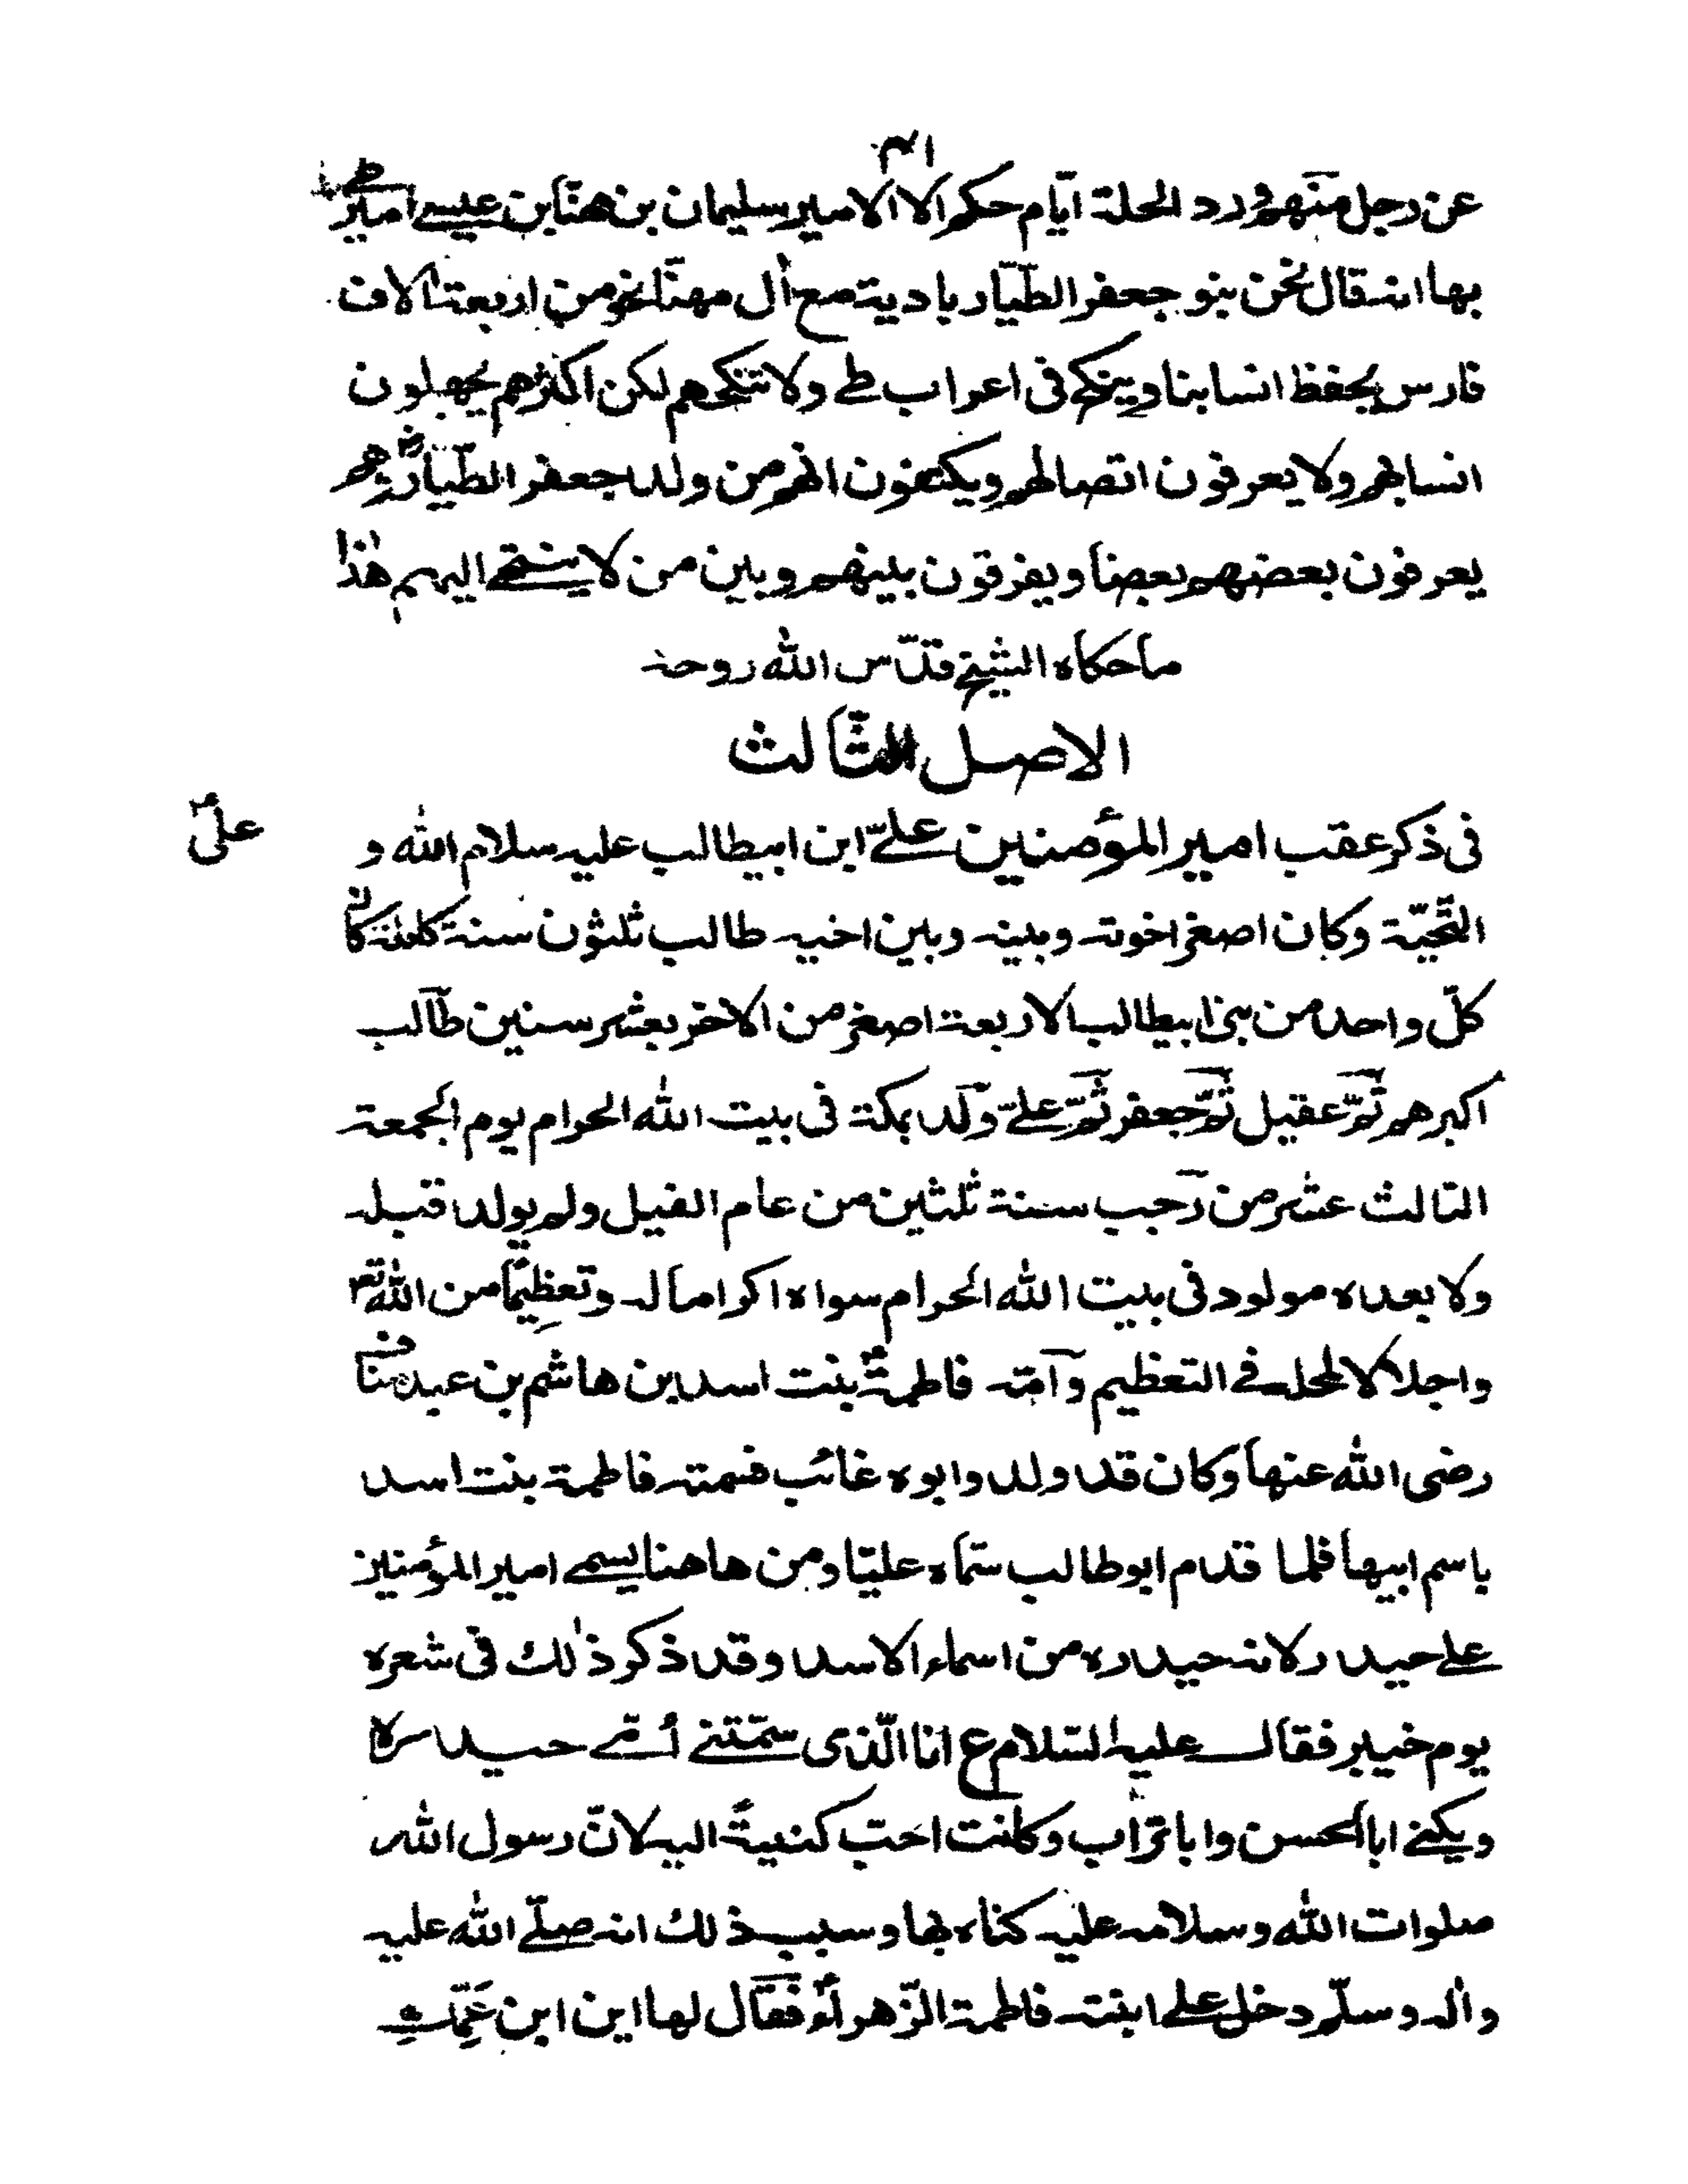 عن رجل منهم ورد الحلة ايّام حكم الا الامير سليمان بن مهنّا بن عيسى امير طى
بها انه قال نحن بنو جعفر الطيّار بادية مع اٰل مهنّا نحو من اربعة اٰلاف
فارس يحفظ انسابنا وينكح فى اعراب طے ولا تنكحهم لكن اكثرهم يجهلون
انسابهم ولا يعرفون اتصالهم ويكتفون انهم من ولد جعفر الطّيار وهم
يعرفون بعضهم بعضا ويفرقون بينهم وبين من لا ينتمى اليهم هٰذا
ما حكاه الشيخ قدّس الله روحه
الاصل الثّالث
فى ذكر عقب امير المؤمنين علىّ ابن ابيطالب عليه سلام الله و
علىؑ
التّحيّة وكان اصغر اخوته وبينه وبين اخيه طالب ثلثون سنة كان
كلّ واحد من بنى ابيطالب الاربعة اصغر من الاخر بعشر سنين طالب
اكبرهم ثمّ عقيل ثمّ جعفر ثمّ علىّ ولد بمكة فى بيت الله الحرام يوم الجمعة
الثالث عشر من رجب سنة ثلثين من عام الفيل ولم يولد قبله
ولا بعده مولود فى بيت الله الحرام سواه اكراما له وتعظيمًا من الله تع
واجلالا لمحله فے التعظيم وامّه فاطمة بنت اسد بن هاشم بن عبد مناف
رضى الله عنها وكان قد ولد وابوه غائب فسمته فاطمة بنت اسد
باسم ابيها فلما قدم ابوطالب سمّاه عليّا ومن هاهنا يسمى امير المؤمنين
على حيدر لانه حيدره من اسماء الاسد وقد ذكر ذٰلك فى شعره
يوم خيبر فقال عليه السّلام ع انا الّذى سمّتنے اُمّے حيدره
ويكنے ابا الحسن وابا تراب وكانت احبّ كنيةً اليه لانّ رسول الله
صلوات الله وسلامه عليه كناه بها وسبب ذلك انه صلّے الله عليه
واٰله وسلّم دخل على ابنته فاطمة الزّهراءؑ فقال لها اين ابن عمّكِ